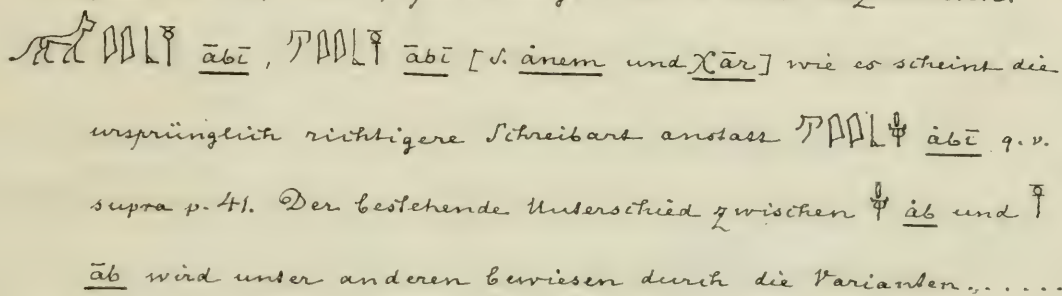 ābī, ābī [S. ånem und χār] wie es scheint die
ursprünglich richtigere Schreibart anstatt åbī q. v.
supra p. 41. Der bestehende Unterschied zwischen åb und
āb wird unter anderen bewiesen durch die Varianten......